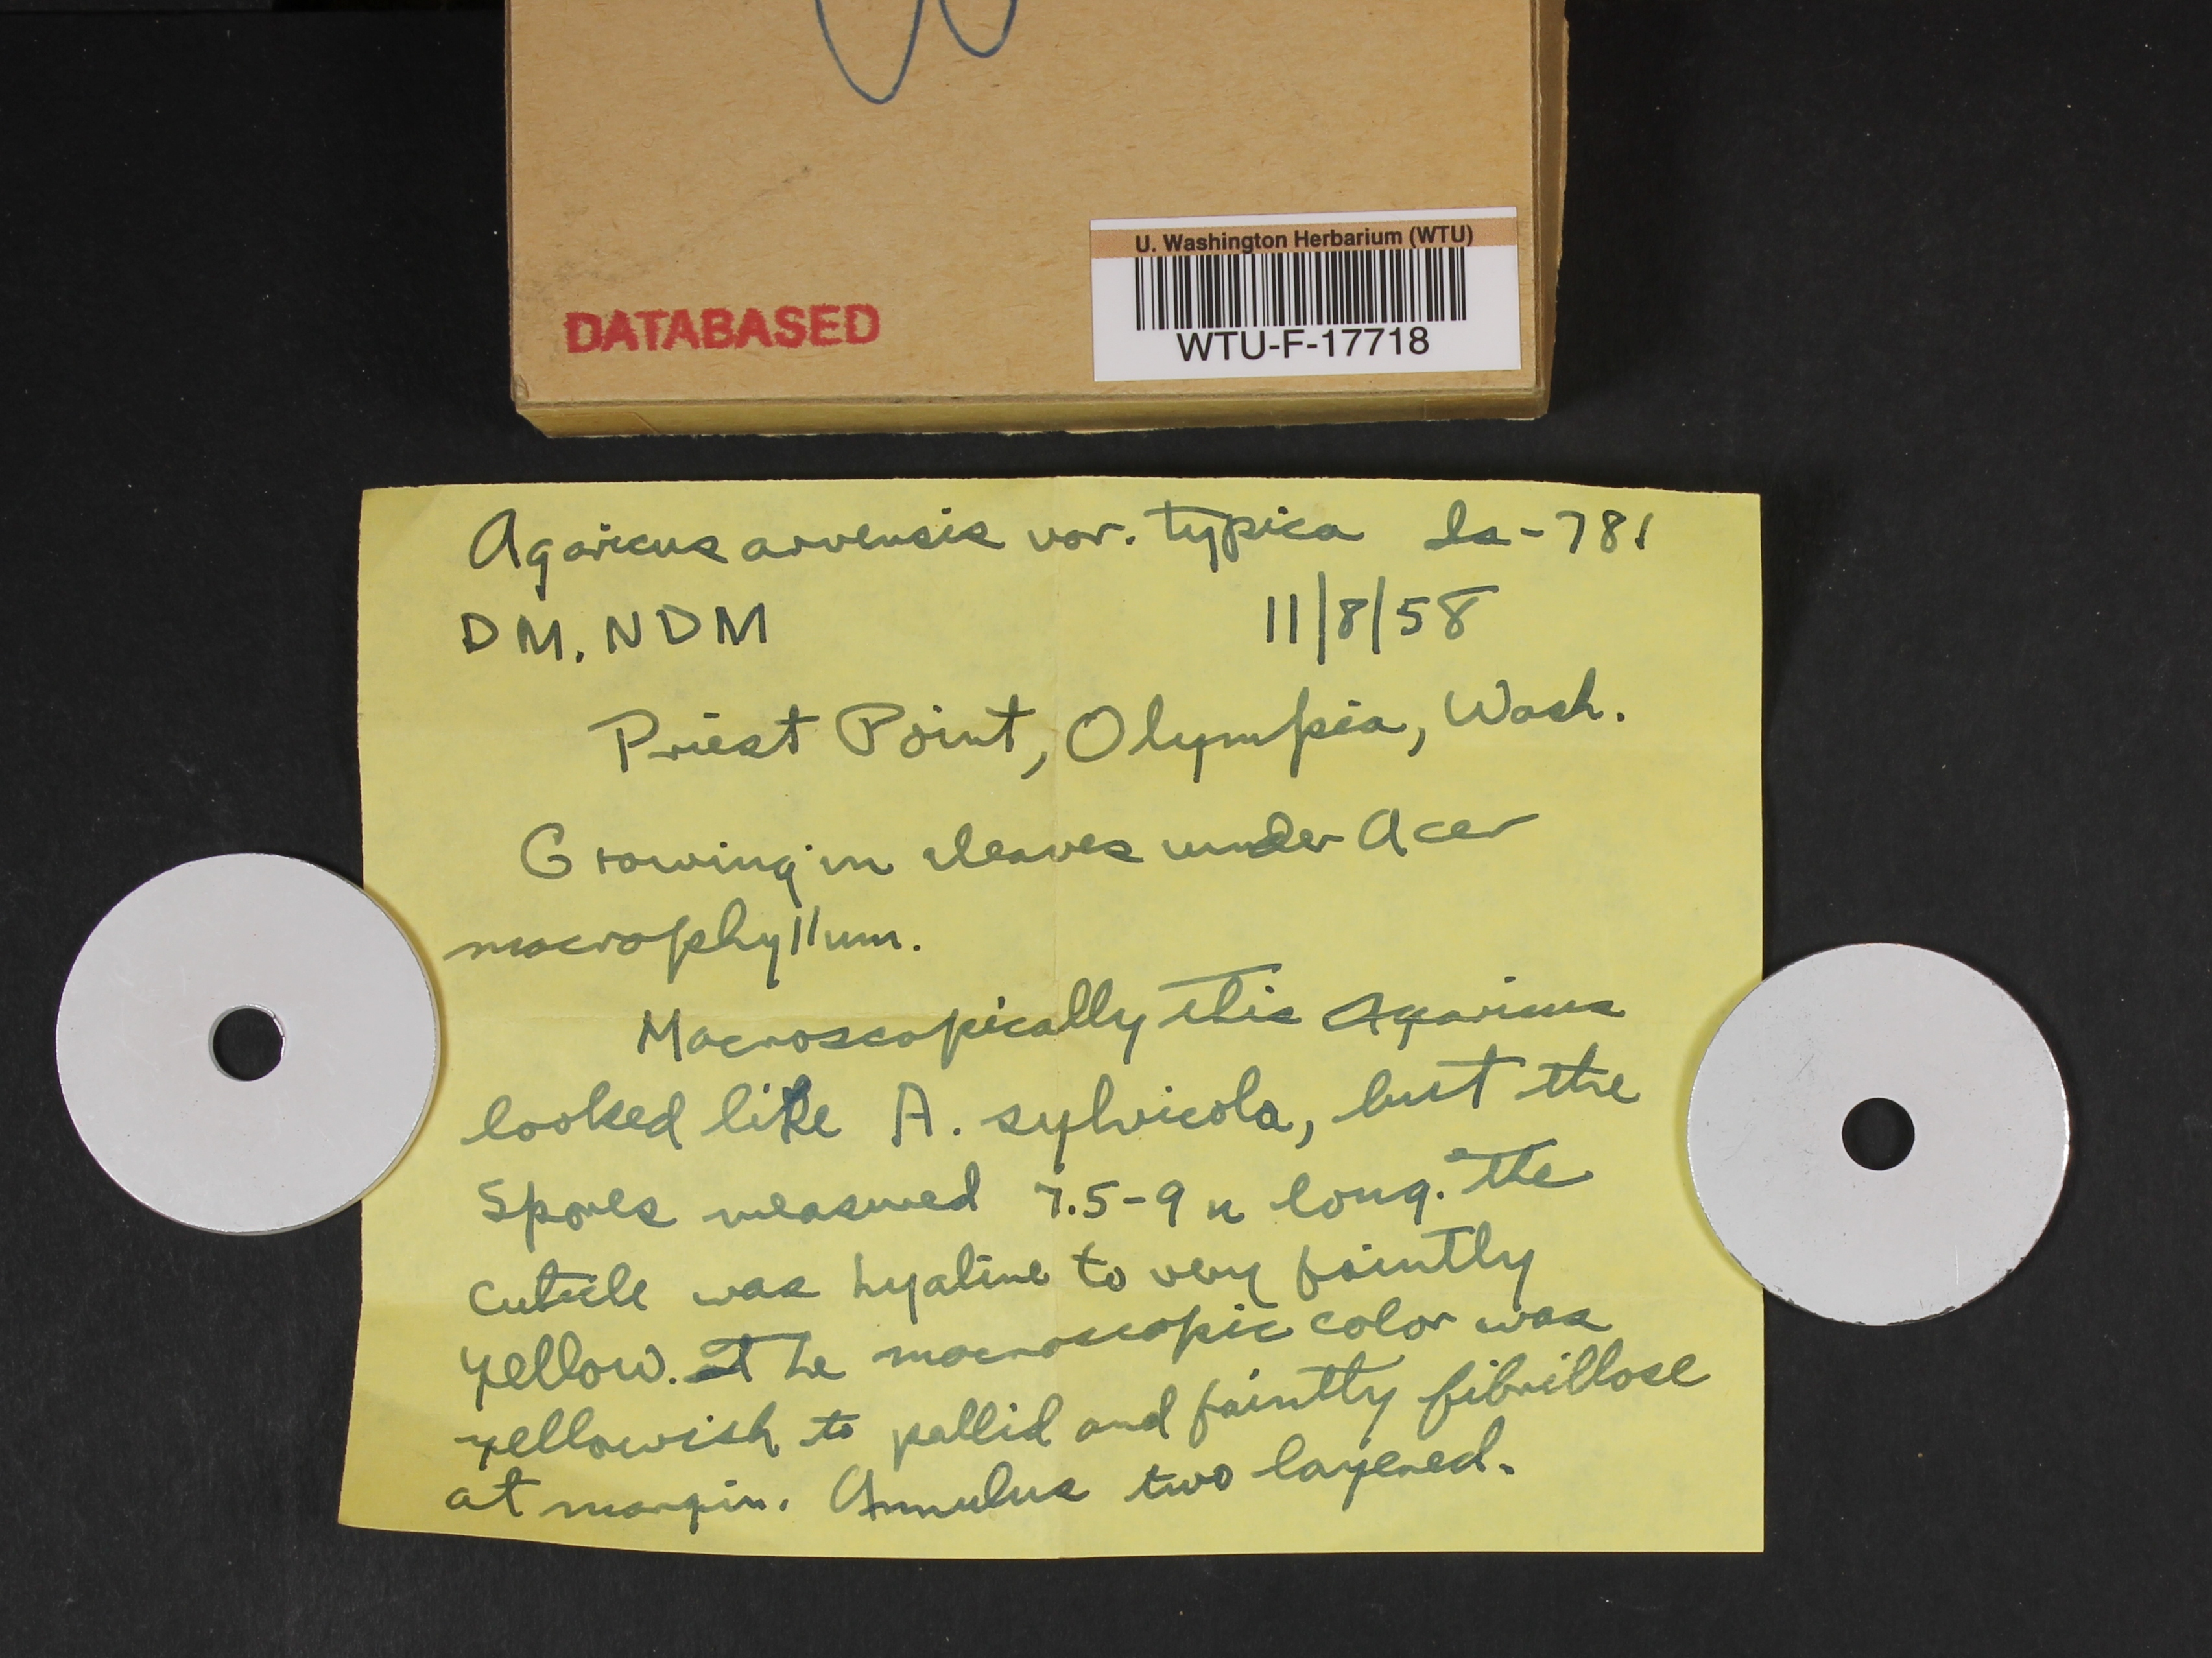 U. Washington Herbarium (WTU)
DATABASED
WTU-F-17718
Agaricus arvensis var. typica Is-781
DM. NDM 11/8/58
Priest Point, Olympia, Wash.
Growing in leaves under Acer
macrophyllum.
Macroscopically this Agaricus
looked like A. sylvicola, but the
spores measured 7.5-9 u long. The
cuticle was hyaline to very faintly
yellow. The macroscopic color was
yellowish to pallid and faintly fibrillose
at margin. Annulus two layered.